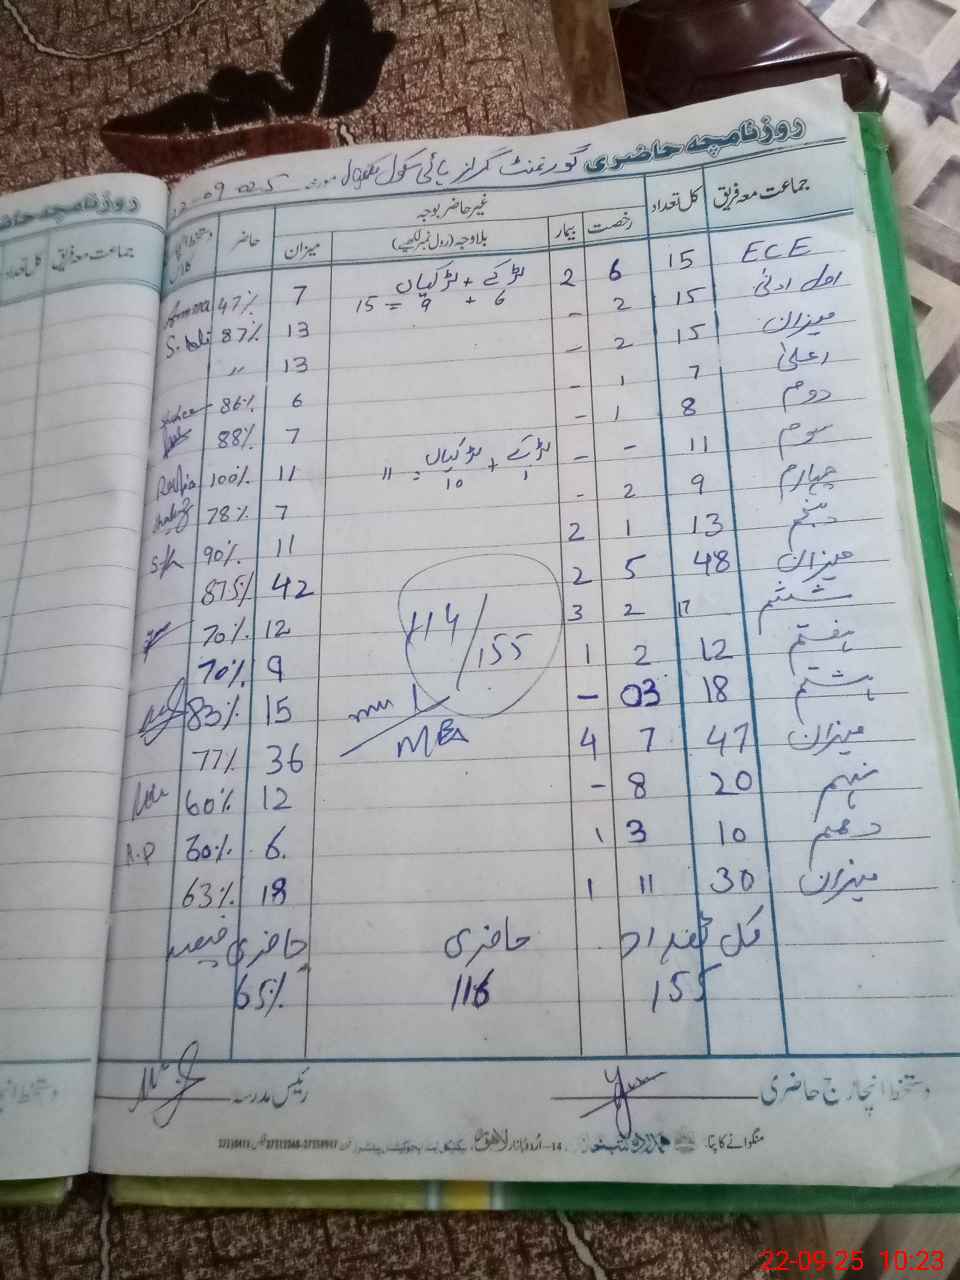 روزنامچہ حاضری گورنمنٹ گرلز ہائی سکول مورخہ 22-09-025
جماعت معہ فریق کل تعداد غیر حاضر بوجہ حاضر
رخصت بیمار بلاوجہ (رول نمبر لکھیے) میزان
ECE 15 6 2 لڑکے + لڑکیاں 7 47% Amna
6 + 9 = 15
اول ادنیٰ 15 2 - 13 87% S. Ali
میزان 15 2 - 13 "
اعلیٰ 7 1 - 6 86%
دوم 8 1 - 7 88%
سوم 11 - - لڑکے + لڑکیاں = 11 11 100%
1 10
چہارم 9 2 - 7 78%
پنجم 13 1 2 11 90%
میزان 48 5 2 42 875%
ششم 17 2 3 12 70%
ہفتم 12 2 1 9 70%
ہشتم 18 03 - 15 83%
میزان 47 7 4 36 77%
نہم 20 8 - 12 60%
دہم 10 3 1 6. 60% A.P
میزان 30 11 1 18 63%
114/155
کل تعداد حاضری حاضری فیصد
155 116 65%
دستخط انچارج حاضری رئیس مدرسہ
منگوانے کا پتا: 14-اُردو بازار لاہور
روزنامچہ حاضری
جماعت معہ فریق کل تعداد
22-09-25 10:23